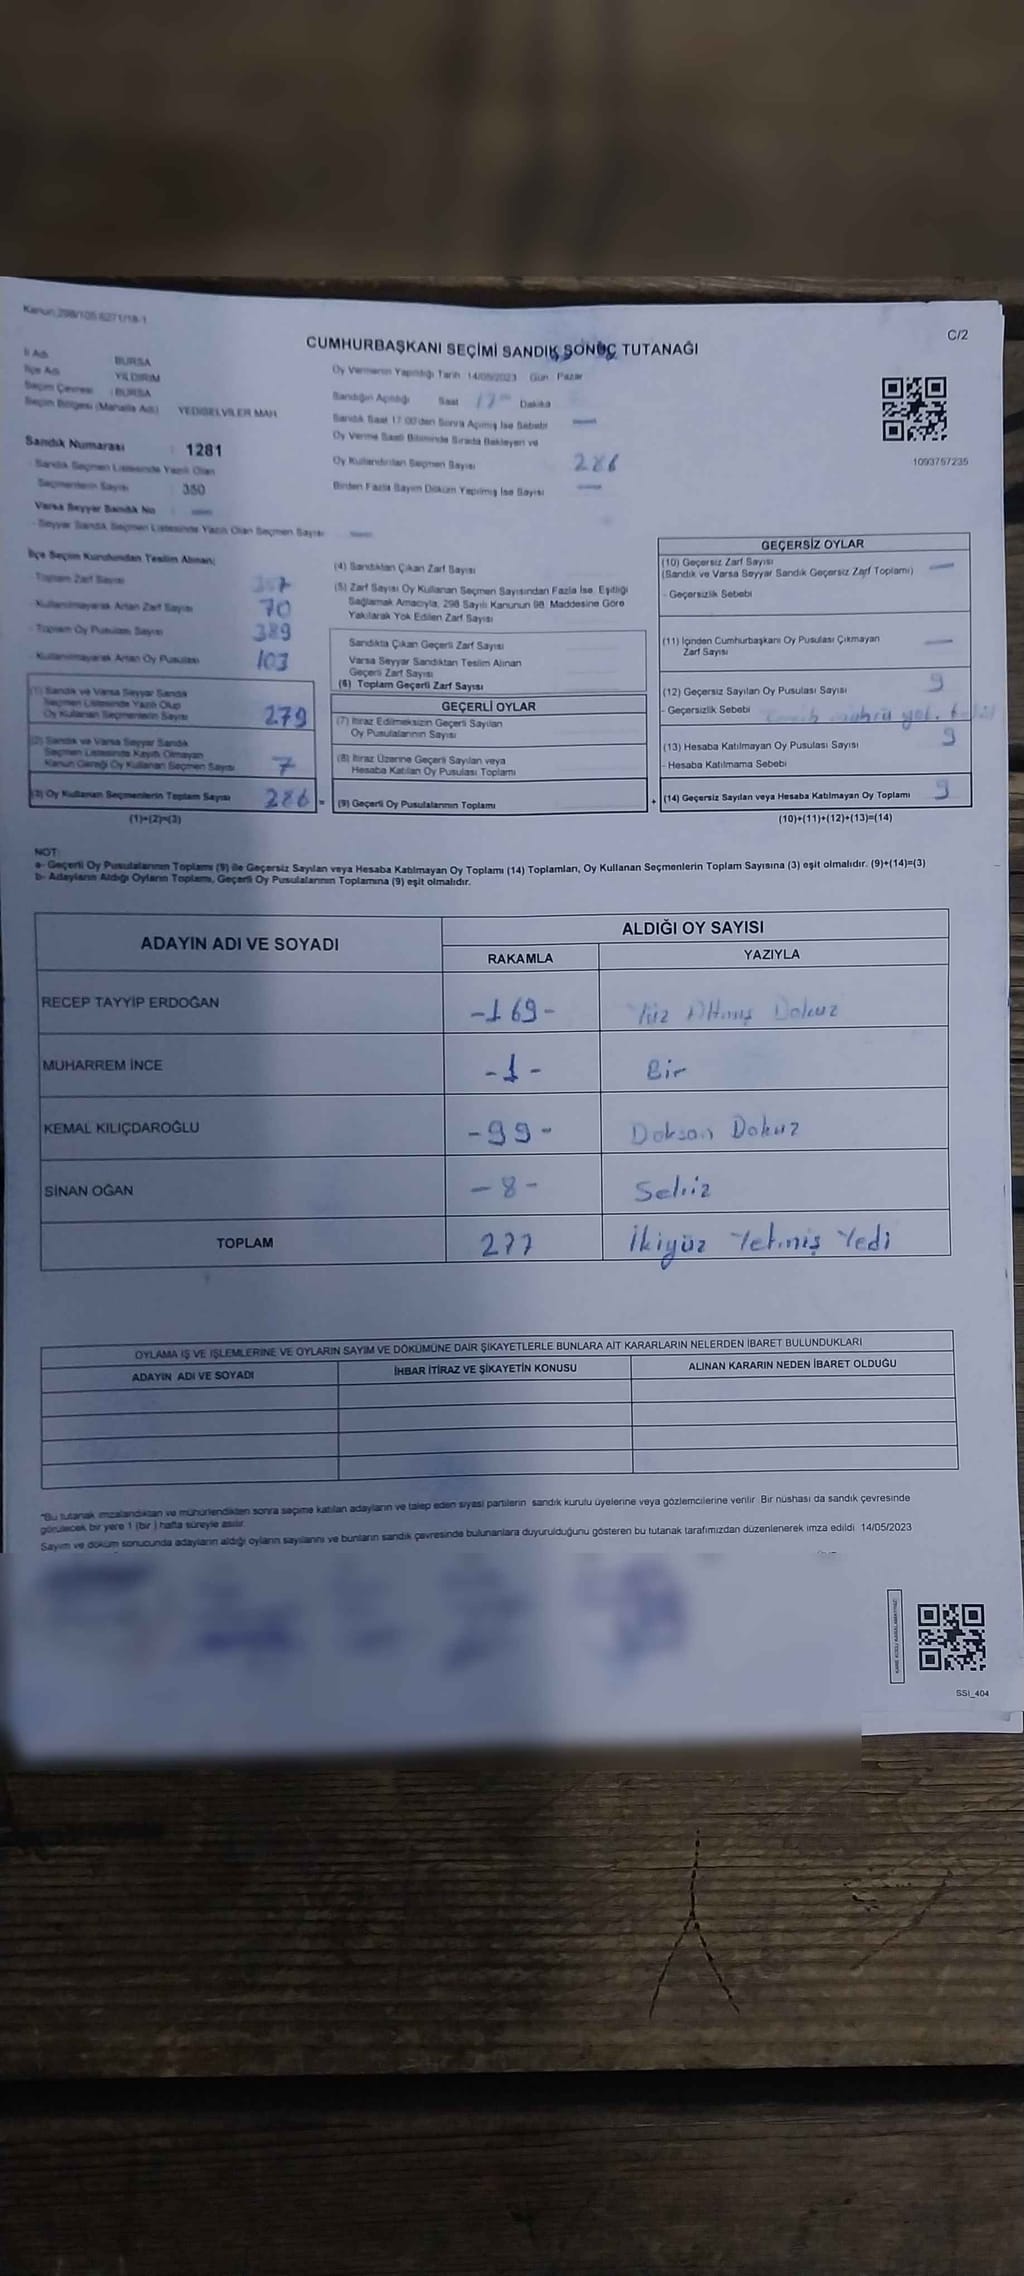 Kanun 298/105 6271/18-1
C/2
CUMHURBAŞKANI SEÇİMİ SANDIK SONUÇ TUTANAĞI
İl Adı BURSA
İlçe Adı YILDIRIM
Seçim Çevresi : BURSA
Seçim Bölgesi (Mahalle Adı) YEDİSELVİLER MAH.
Sandık Numarası : 1281
- Sandık Seçmen Listesinde Yazılı Olan
Seçmenlerin Sayısı : 350
Varsa Seyyar Sandık No
- Seyyar Sandık Seçmen Listesinde Yazılı Olan Seçmen Sayısı
Oy Vermenin Yapıldığı Tarih 14/05/2023 Gün Pazar
Sandığın Açıldığı Saat 17 Dakika
Sandık Saat 17:00'den Sonra Açılmış İse Sebebi
Oy Verme Saati Bitiminde Sırada Bekleyen ve
Oy Kullandırılan Seçmen Sayısı 286
Birden Fazla Sayım Döküm Yapılmış İse Sayısı
1093757235
İlçe Seçim Kurulundan Teslim Alınan;
- Toplam Zarf Sayısı
- Kullanılmayarak Artan Zarf Sayısı 70
- Toplam Oy Pusulası Sayısı 389
- Kullanılmayarak Artan Oy Pusulası 103
(1) Sandık ve Varsa Seyyar Sandık
Seçmen Listesinde Yazılı Olup
Oy Kullanan Seçmenlerin Sayısı 279
(2) Sandık ve Varsa Seyyar Sandık
Seçmen Listesinde Kayıtlı Olmayan
Kanun Gereği Oy Kullanan Seçmen Sayısı 7
(3) Oy Kullanan Seçmenlerin Toplam Sayısı 286 =
(1)+(2)=(3)
(4) Sandıktan Çıkan Zarf Sayısı
(5) Zarf Sayısı Oy Kullanan Seçmen Sayısından Fazla İse, Eşitliği
Sağlamak Amacıyla, 298 Sayılı Kanunun 98. Maddesine Göre
Yakılarak Yok Edilen Zarf Sayısı
Sandıkta Çıkan Geçerli Zarf Sayısı
Varsa Seyyar Sandıktan Teslim Alınan
Geçerli Zarf Sayısı
(6) Toplam Geçerli Zarf Sayısı
GEÇERLİ OYLAR
(7) İtiraz Edilmeksizin Geçerli Sayılan
Oy Pusulalarının Sayısı
(8) İtiraz Üzerine Geçerli Sayılan veya
Hesaba Katılan Oy Pusulası Toplamı
(9) Geçerli Oy Pusulalarının Toplamı +
GEÇERSİZ OYLAR
(10) Geçersiz Zarf Sayısı
(Sandık ve Varsa Seyyar Sandık Geçersiz Zarf Toplamı)
- Geçersizlik Sebebi
(11) İçinden Cumhurbaşkanı Oy Pusulası Çıkmayan
Zarf Sayısı
(12) Geçersiz Sayılan Oy Pusulası Sayısı 9
- Geçersizlik Sebebi
(13) Hesaba Katılmayan Oy Pusulası Sayısı 9
- Hesaba Katılmama Sebebi
(14) Geçersiz Sayılan veya Hesaba Katılmayan Oy Toplamı 9
(10)+(11)+(12)+(13)=(14)
NOT:
a- Geçerli Oy Pusulalarının Toplamı (9) ile Geçersiz Sayılan veya Hesaba Katılmayan Oy Toplamı (14) Toplamları, Oy Kullanan Seçmenlerin Toplam Sayısına (3) eşit olmalıdır. (9)+(14)=(3)
b- Adayların Aldığı Oyların Toplamı, Geçerli Oy Pusulalarının Toplamına (9) eşit olmalıdır.
ADAYIN ADI VE SOYADI ALDIĞI OY SAYISI
RAKAMLA YAZIYLA
RECEP TAYYİP ERDOĞAN -169- Yüz Altmış Dokuz
MUHARREM İNCE -1- Bir
KEMAL KILIÇDAROĞLU -99- Doksan Dokuz
SİNAN OĞAN -8- Sekiz
TOPLAM 277 İkiyüz Yetmiş Yedi
OYLAMA İŞ VE İŞLEMLERİNE VE OYLARIN SAYIM VE DÖKÜMÜNE DAİR ŞİKAYETLERLE BUNLARA AİT KARARLARIN NELERDEN İBARET BULUNDUKLARI
ADAYIN ADI VE SOYADI İHBAR İTİRAZ VE ŞİKAYETİN KONUSU ALINAN KARARIN NEDEN İBARET OLDUĞU
*Bu tutanak imzalandıktan ve mühürlendikten sonra seçime katılan adayların ve talep eden siyasi partilerin sandık kurulu üyelerine veya gözlemcilerine verilir. Bir nüshası da sandık çevresinde
görülecek bir yere 1 (bir) hafta süreyle asılır.
Sayım ve döküm sonucunda adayların aldığı oyların sayılarını ve bunların sandık çevresinde bulunanlara duyurulduğunu gösteren bu tutanak tarafımızdan düzenlenerek imza edildi 14/05/2023
SSI_404